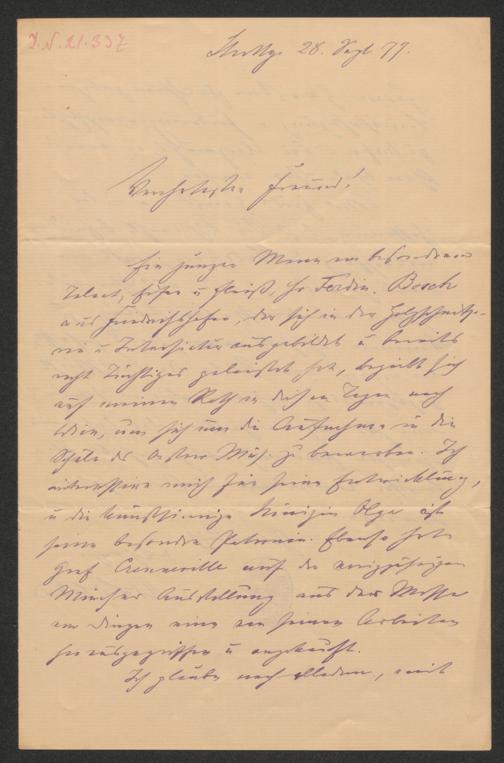 I.N. 21.337
Stuttg. 28. Sept 77.
Verehrtester Freund!
Ein junger Mann von besonderem
Talent, Eifer u Fleiß, Hr Ferdin. Bosch
aus Friedrichshafen, der sich in der Holzschnitze-
rei u Intarsiatur ausgebildet u bereits
recht Tüchtiges geleistet hat, begiebt sich
auf meinen Rath in diesen Tagen nach
Wien, um sich um die Aufnahme in die
Schule des Österr Mus. zu bewerben. Ich
interessire mich für seine Entwicklung,
u die kunstsinnige Königin Olga ist
seine besondre Patronin. Ebenso hat
Graf Crenneville auf der vorigjährigen
Münchner Ausstellung aus der Masse
von Dingen eine von seinen Arbeiten
herausgegriffen u angekauft.
Ich glaube nach alledem, mit